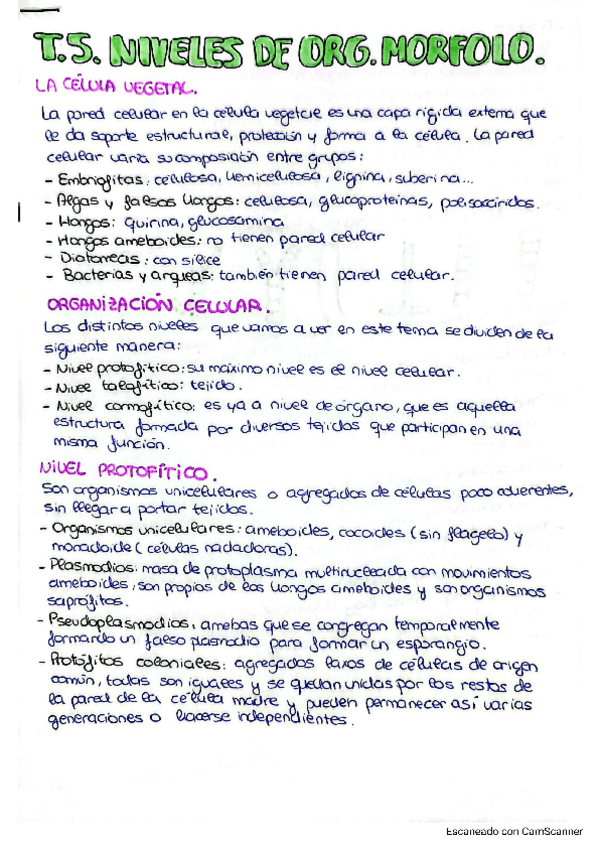 T.5. NIVELES DE ORG. MORFOLO.
LA CÉLULA VEGETAL.
La pared celular en la célula vegetal es una capa rígida externa que
le da soporte estructural, protección y forma a la célula. La pared
celular varía su composición entre grupos:
- Embriofitas: celulosa, hemicelulosa, lignina, suberina...
- Algas y falsos hongos: celulosa, glucoproteínas, polisacáridos.
- Hongos: quirina, glucosamina
- Hongos ameboides: no tienen pared celular
- Diatomeas: con sílice
- Bacterias y arqueas: también tienen pared celular.
ORGANIZACIÓN CELULAR.
Los distintos niveles que vamos a ver en este tema se dividen de la
siguiente manera:
- Nivel protofítico: su máximo nivel es el nivel celular.
- Nivel talofítico: tejido.
- Nivel cormofítico: es ya a nivel de órgano, que es aquella
estructura formada por diversos tejidos que participan en una
misma función.
NIVEL PROTOFÍTICO.
Son organismos unicelulares o agregados de células poco adherentes,
sin llegar a portar tejidos.
- Organismos unicelulares: ameboides, cocoides (sin flagelo) y
monadoide (células nadadoras).
- Plasmodios: masa de protoplasma multinucleada con movimientos
ameboides, son propios de los hongos ameboides y son organismos
saprófitos.
- Pseudoplasmodios, amebas que se congregan temporalmente
formando un falso plasmodio para formar un esporangio.
- Protófitos coloniales: agregados laxos de células de origen
común, todas son iguales y se quedan unidas por los restos de
la pared de la célula madre y pueden permanecer así varias
generaciones o hacerse independientes.
Escaneado con CamScanner